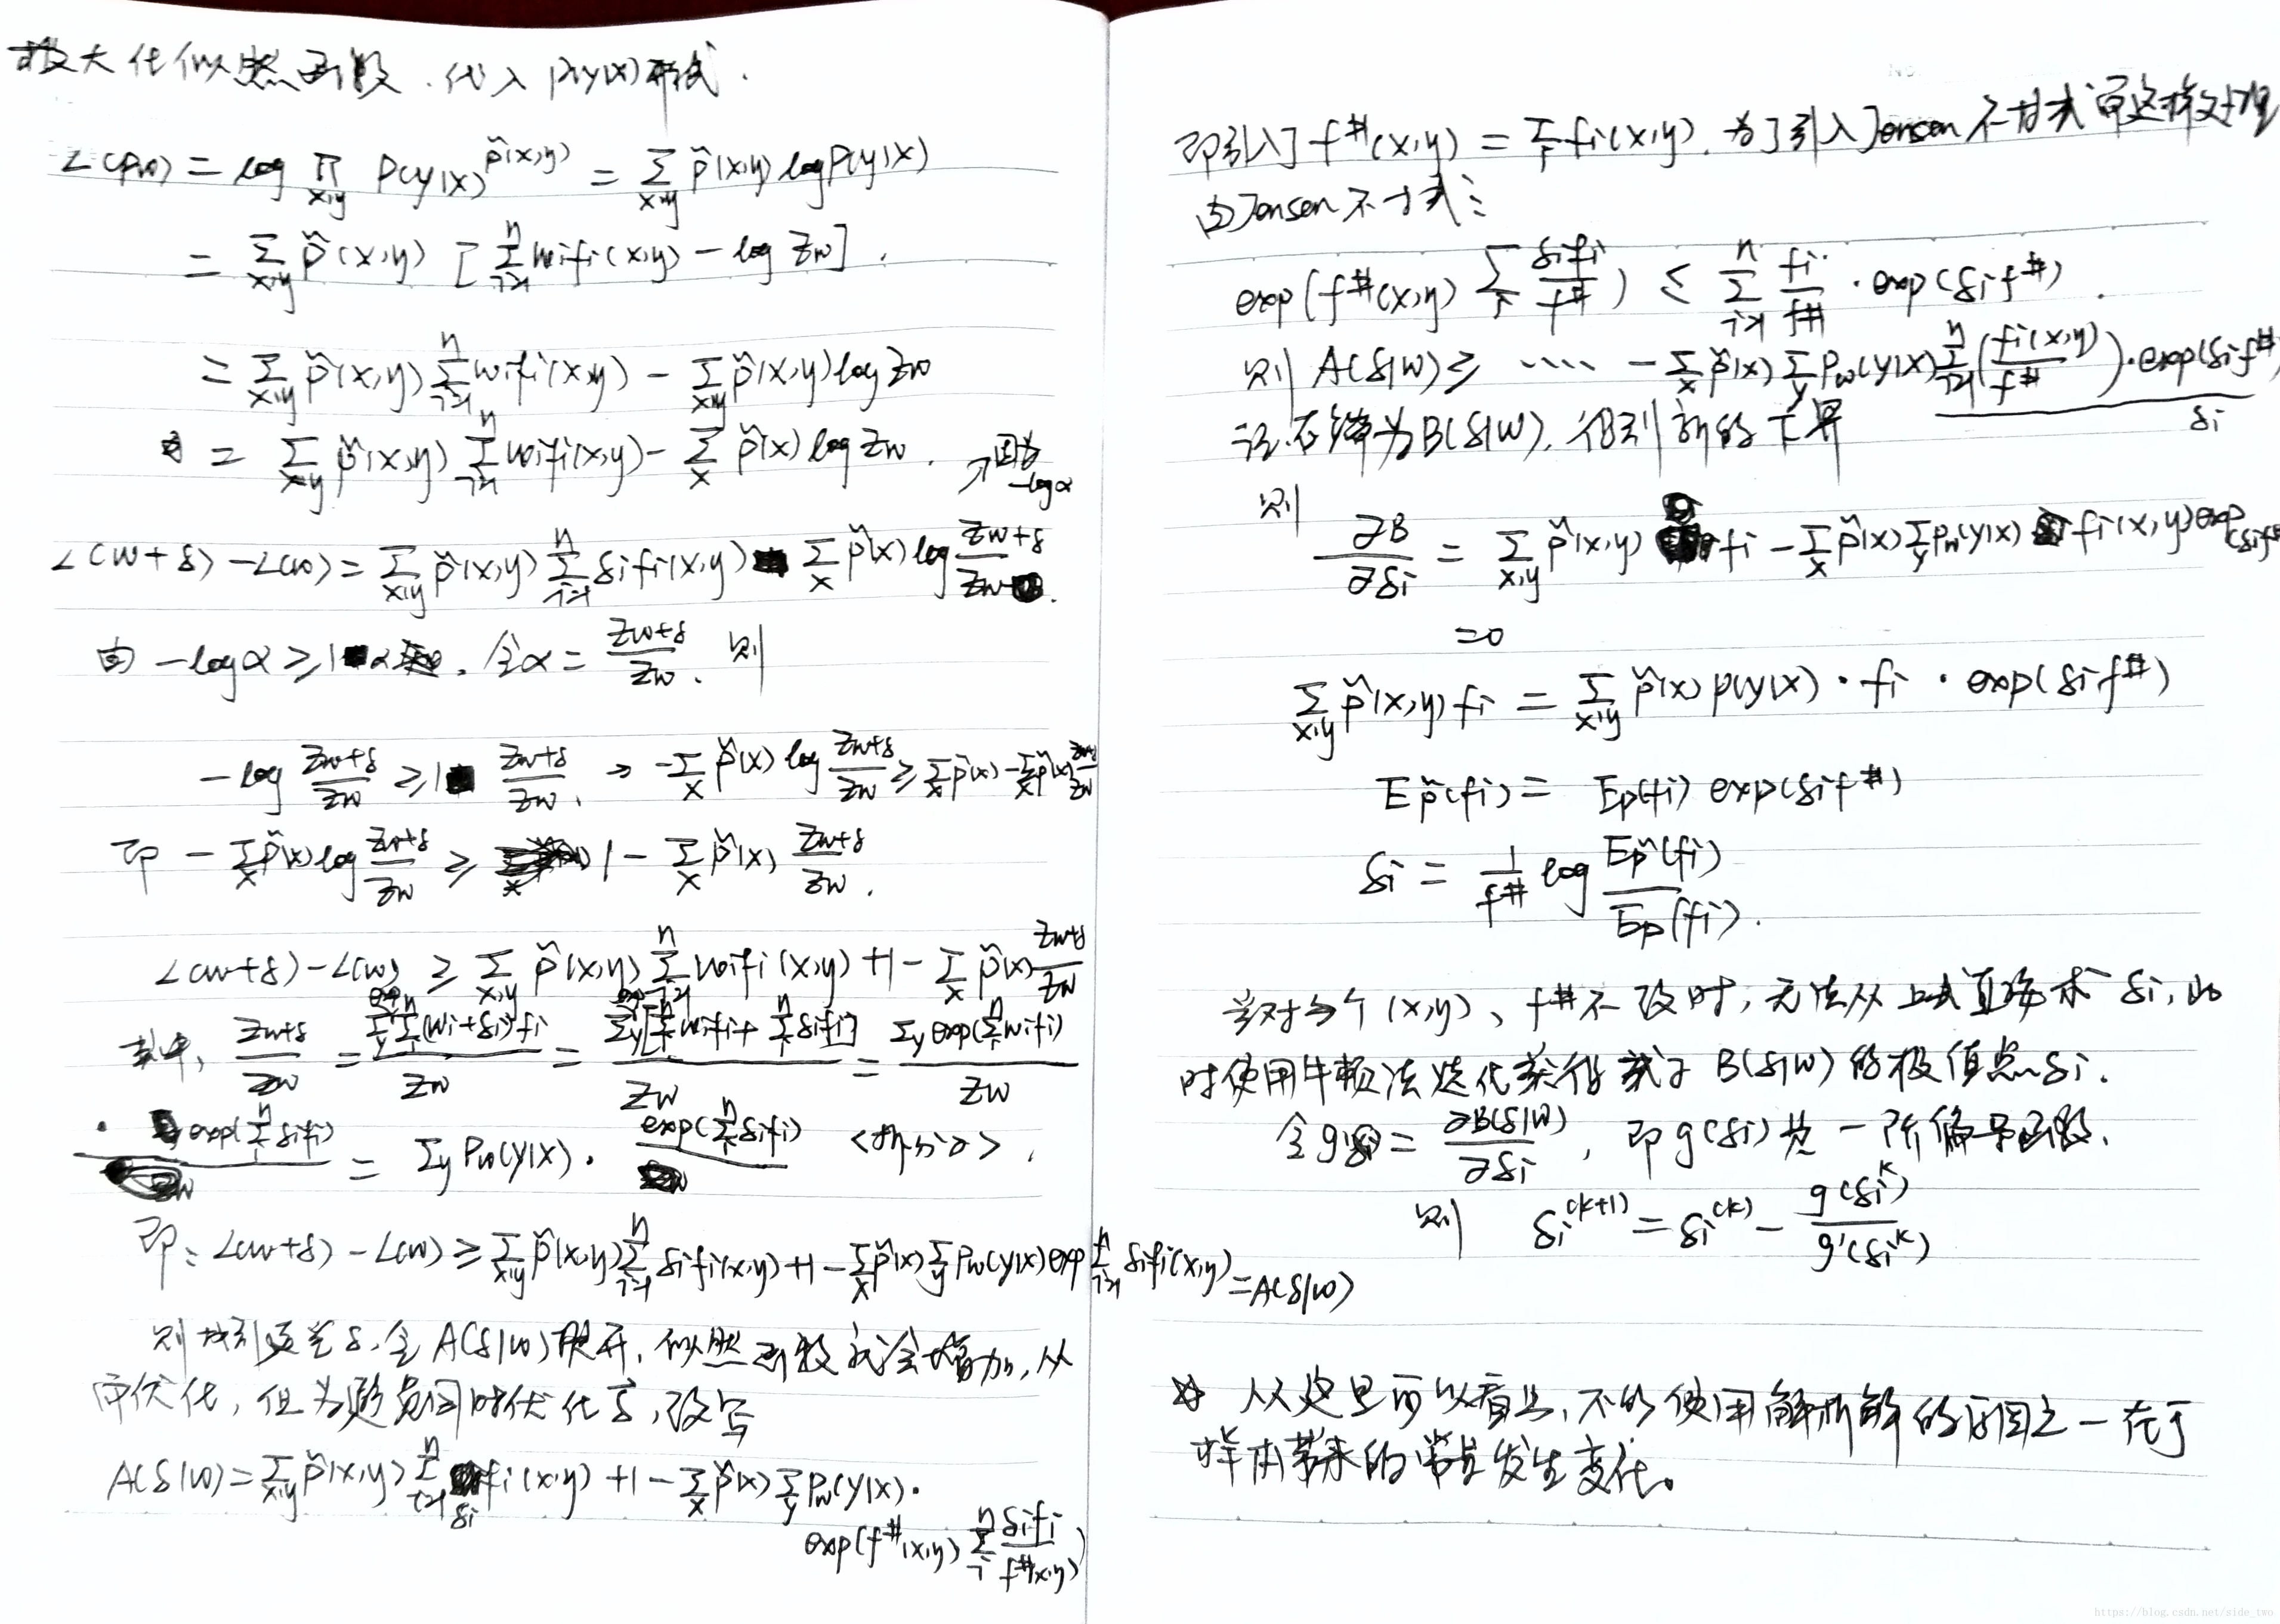 极大化似然函数.代入P(y|x)形式.
L(Pw) = log ∏_{x,y} P(y|x)^{p̃(x,y)} = Σ_{x,y} p̃(x,y) log P(y|x)
= Σ_{x,y} p̃(x,y) [Σ_{i=1}^n wifi(x,y) - log Zw].
= Σ_{x,y} p̃(x,y) Σ_{i=1}^n wifi(x,y) - Σ_{x,y} p̃(x,y) log Zw
= Σ_{x,y} p̃(x,y) Σ_{i=1}^n wifi(x,y) - Σ_x p̃(x) log Zw. ↗因为 -logα
L(w+δ) - L(w) = Σ_{x,y} p̃(x,y) Σ_{i=1}^n δifi(x,y) Σ_x p̃(x) log Zw+δ/Zw.
由 -logα ≥ 1 α. 令α = Zw+δ/Zw. 则
-log Zw+δ/Zw ≥ 1 Zw+δ/Zw. → -Σ_x p̃(x) log Zw+δ/Zw ≥ Σ_x p̃(x) - Σ_x p̃(x) Zw+δ/Zw
即 - Σ_x p̃(x) log Zw+δ/Zw ≥ 1 - Σ_x p̃(x) Zw+δ/Zw.
L(w+δ) - L(w) ≥ Σ_{x,y} p̃(x,y) Σ_{i=1}^n wifi(x,y) + 1 - Σ_x p̃(x) Zw+δ/Zw
其中, Zw+δ/Zw = Σ_y exp Σ_i^n (wi+δi)fi / Zw = Σ_y exp[Σ_i^n wifi + Σ_i^n δifi] / Zw = Σ_y exp(Σ_i^n wifi) / Zw
· exp(Σ_i^n δifi) = Σ_y Pw(y|x) · exp(Σ_i^n δifi) <拆分>.
即: L(w+δ) - L(w) ≥ Σ_{x,y} p̃(x,y) Σ_{i=1}^n δifi(x,y) + 1 - Σ_x p̃(x) Σ_y Pw(y|x) exp Σ_{i=1}^n δifi(x,y) = A(δ|w)
则找到适当δ,令A(δ|w)提升,似然函数就会增加,从
而优化,但为避免同时优化δ,改写
A(δ|w) = Σ_{x,y} p̃(x,y) Σ_{i=1}^n δi fi(x,y) + 1 - Σ_x p̃(x) Σ_y Pw(y|x) ·
exp(f#(x,y) Σ_i^n δifi/f#(x,y))
即引入了f#(x,y) = Σ_i fi(x,y). 为了引入Jensen不等式而这样处理
由Jensen不等式:
exp(f#(x,y) Σ_i δifi/f#) ≤ Σ_{i=1}^n fi/f# · exp(δif#).
则 A(δ|w) ≥ ···· - Σ_x p̃(x) Σ_y Pw(y|x) Σ_{i=1}^n (fi(x,y)/f#) · exp(δif#)
δi
记右端为B(δ|w),得到新的下界
则
∂B/∂δi = Σ_{x,y} p̃(x,y) fi - Σ_x p̃(x) Σ_y Pw(y|x) fi(x,y) exp(δif#)
=0
Σ_{x,y} p̃(x,y) fi = Σ_{x,y} p̃(x) P(y|x) · fi · exp(δif#)
Ep̃(fi) = Ep(fi) exp(δif#)
δi = 1/f# log Ep̃(fi)/Ep(fi).
当对每个(x,y)、f#不改时,无法从上式直接求δi,此
时使用牛顿法迭代获得关于B(δ|w)的极值点δi.
令g(δi) = ∂B(δ|w)/∂δi, 即g(δi)为一阶偏导函数.
则 δi^(k+1) = δi^(k) - g(δi^k)/g'(δi^k)
从这里可以看出,不能使用解析解的原因之一在于
样本带来的常量发生变化。
https://blog.csdn.net/side_two